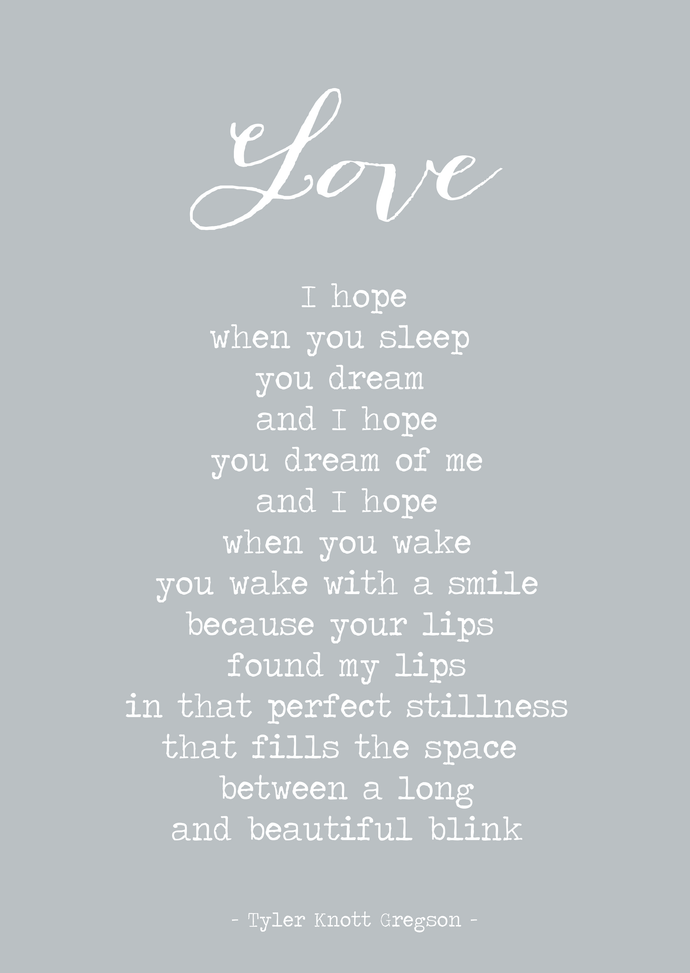 Love
I hope
when you sleep
you dream
and I hope
you dream of me
and I hope
when you wake
you wake with a smile
because your lips
found my lips
in that perfect stillness
that fills the space
between a long
and beautiful blink
- Tyler Knott Gregson -